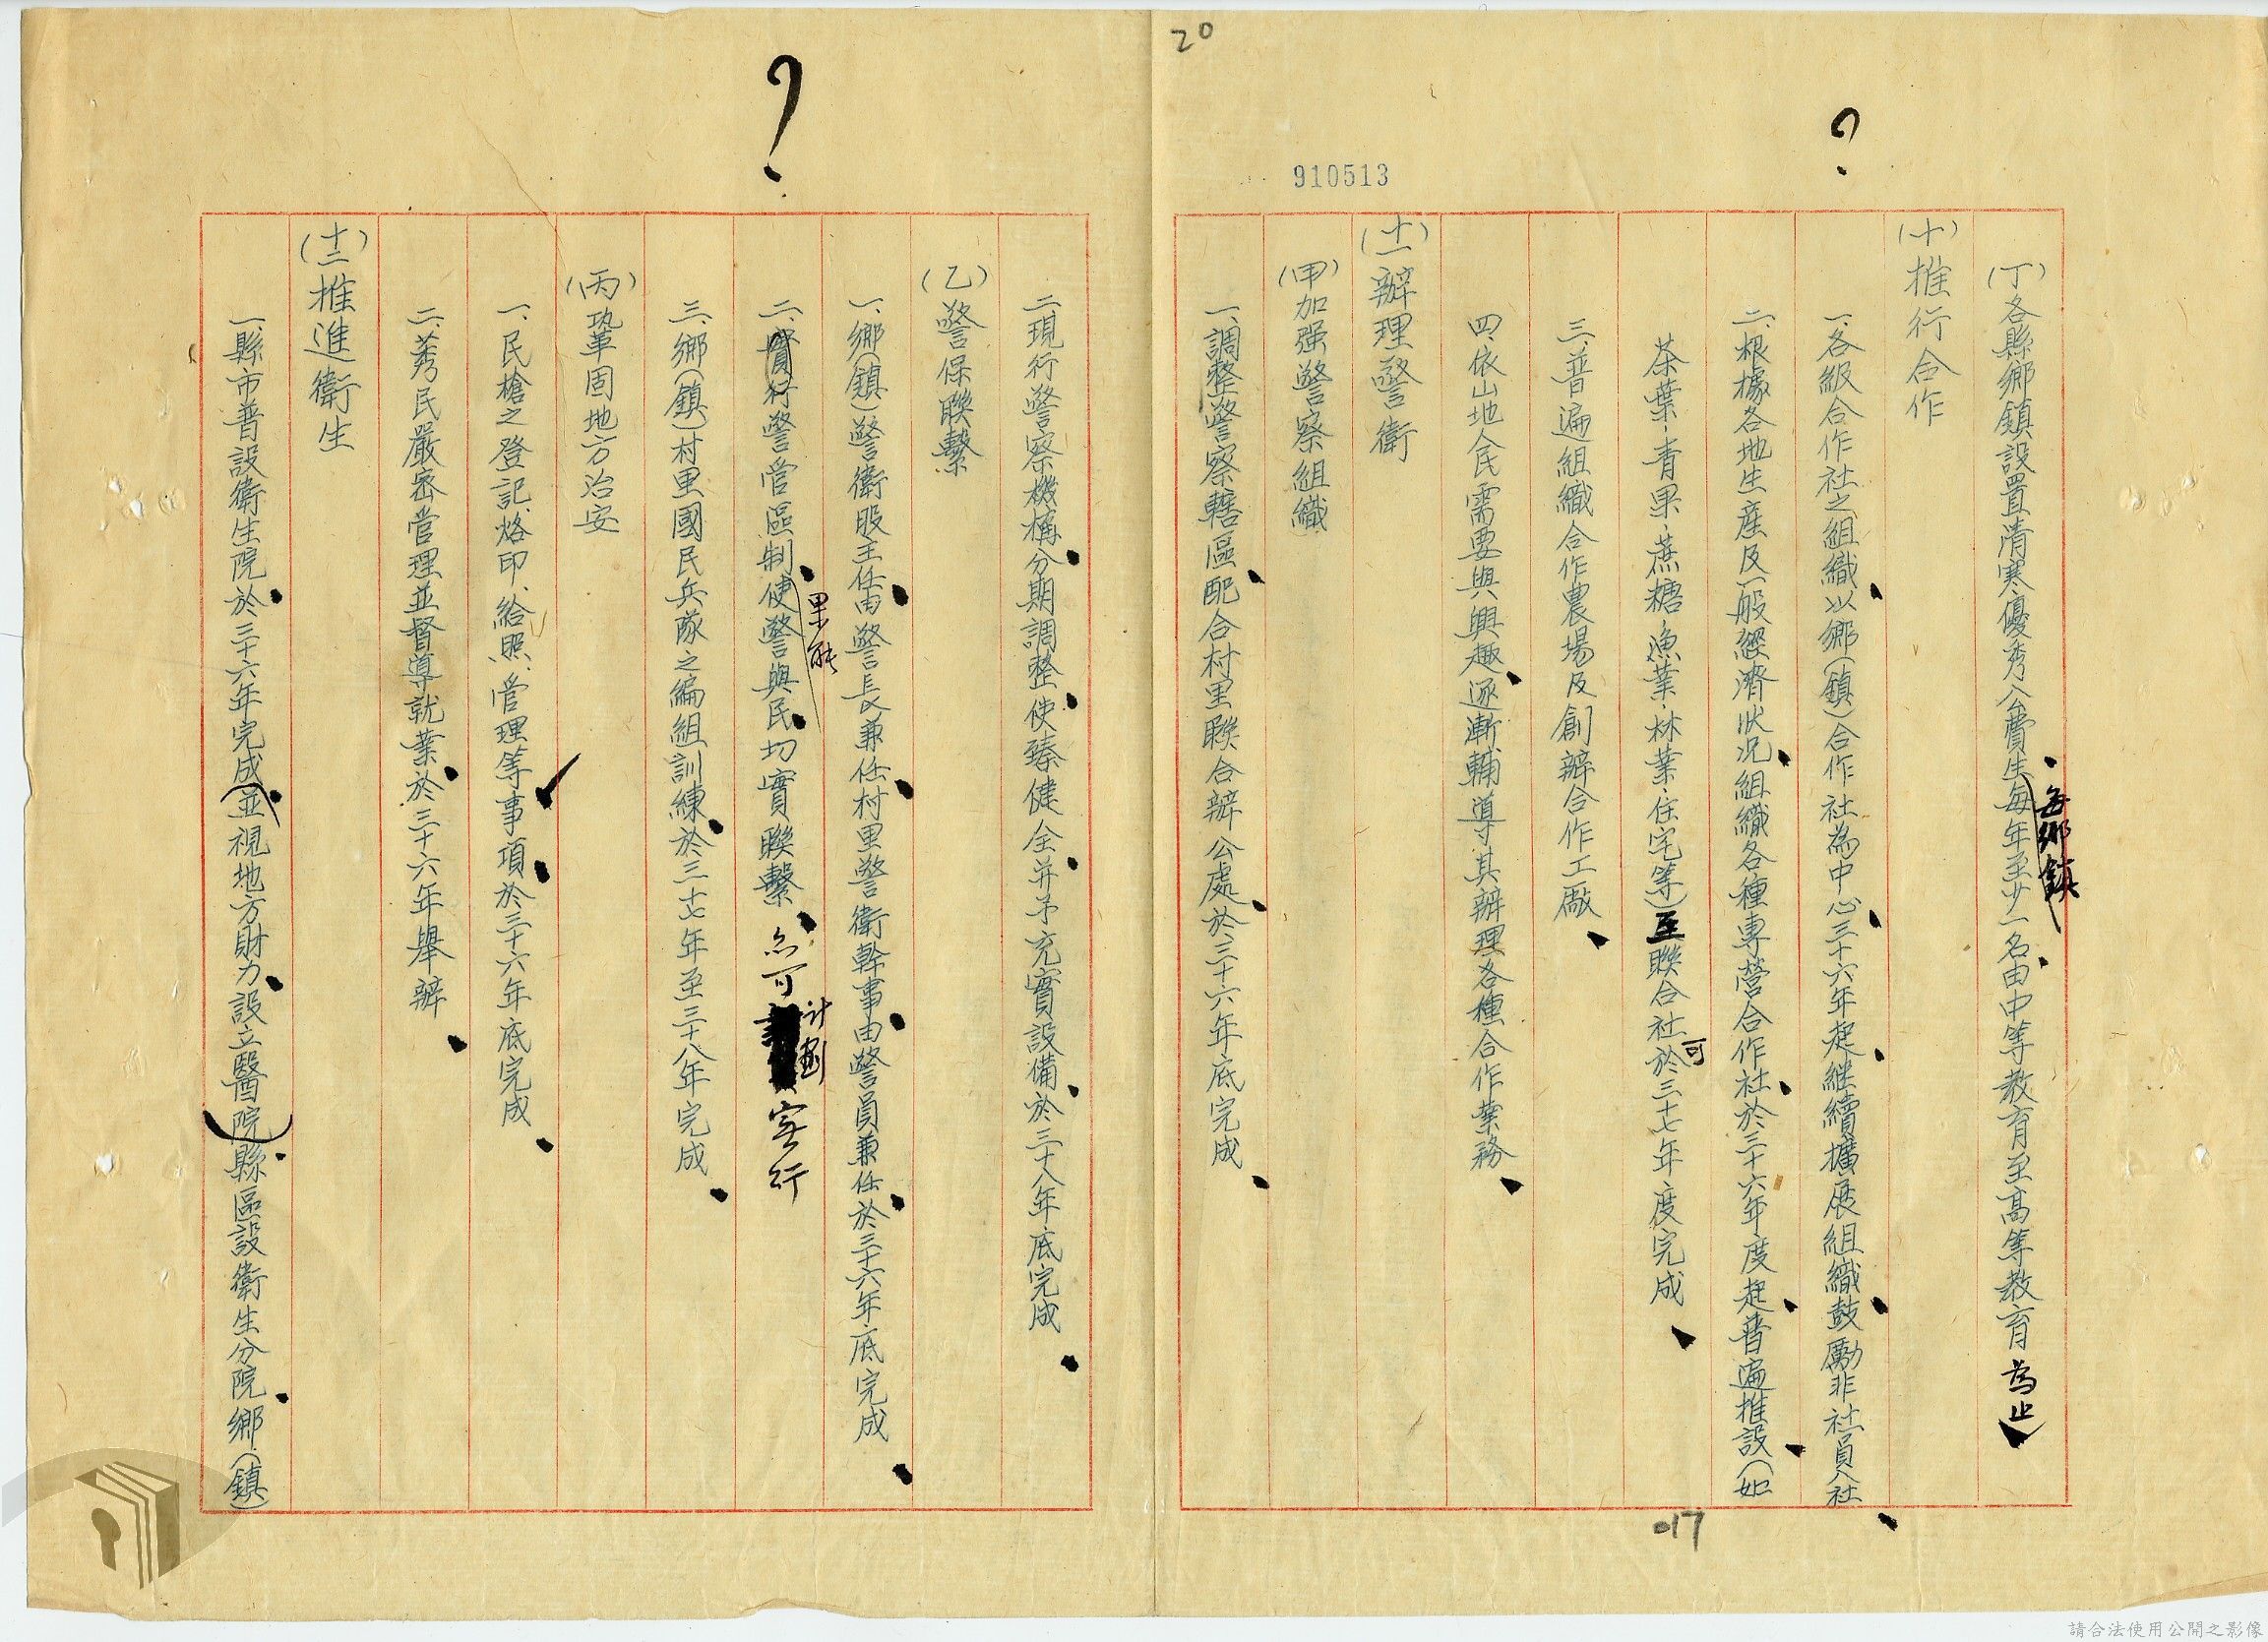 20
910513
?
(丁)各縣鄉鎮設置清寒優秀公費生每年至少一名由中等教育至高等教育為止
每鄉鎮
(十)推行合作
一、各級合作社之組織以鄉(鎮)合作社為中心三十六年起繼續擴展組織鼓勵非社員入社
二、根據各地生產及一般經濟狀況組織各種專營合作社於三十六年度起普遍推設(如
茶葉、青果、蔗糖、漁業、林業、住宅等)至聯合社於三十七年度完成
可
三、普遍組織合作農場及創辦合作工廠
四、依山地人民需要與興趣逐漸輔導其辦理各種合作業務
(十一)辦理警衛
(甲)加强警察組織
一、調整警察轄區配合村里聯合辦公處於三十六年底完成
17
?
二、現行警察機構分期調整使臻健全并予充實設備於三十八年底完成
(乙)警保聯繫
一、鄉(鎮)警衛股主任由警長兼任村里警衛幹事由警員兼任於三十六年底完成
二、實行警管區制使警與民切實聯繫亦可計劃实行
果能
三、鄉(鎮)村里國民兵隊之編組訓練於三十七年至三十八年完成
(丙)鞏固地方治安
一、民槍之登記、烙印、給照、管理等事項於三十六年底完成
二、莠民嚴密管理並督導就業於三十六年舉辦
(十二)推進衛生
一、縣市普設衛生院於三十六年完成並視地方財力設立醫院縣區設衛生分院鄉(鎮)
請合法使用公開之影像